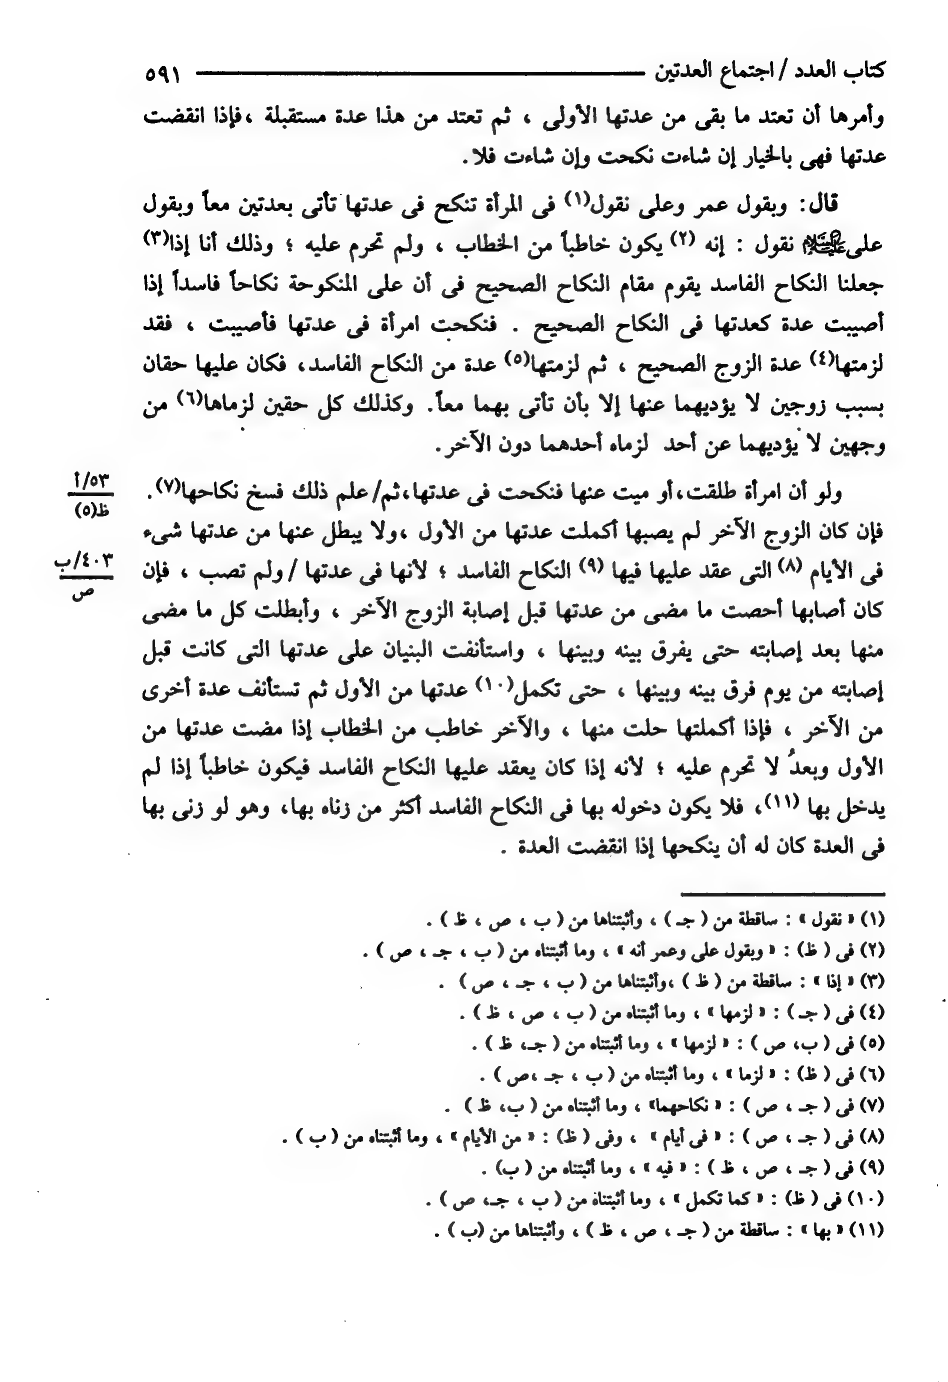 كتاب العدد / اجتماع العدتين ــــــــ ٥٩١
وأمرها أن تعتد ما بقى من عدتها الأولى ، ثم تعتد من هذا عدة مستقبلة ،فإذا انقضت
عدتها فهى بالخيار إن شاءت نكحت وإن شاءت فلا.
قال: وبقول عمر وعلى نقول(١) فى المرأة تنكح فى عدتها تأتى بعدتين معاً وبقول
على نقول : إنه (٢) يكون خاطباً من الخطاب ، ولم تحرم عليه ؛ وذلك أنا إذا(٣)
جعلنا النكاح الفاسد يقوم مقام النكاح الصحيح فى أن على المنكوحة نكاحاً فاسداً إذا
أصيبت عدة كعدتها فى النكاح الصحيح . فنكحت امرأة فى عدتها فأصيبت ، فقد
لزمتها(٤) عدة الزوج الصحيح ، ثم لزمتها(٥) عدة من النكاح الفاسد، فكان عليها حقان
بسبب زوجين لا يؤديهما عنها إلا بأن تأتى بهما معاً. وكذلك كل حقين لزماها(٦) من
وجهين لا يؤديهما عن أحد لزماه أحدهما دون الآخر.
ولو أن امرأة طلقت،أو ميت عنها فنكحت فى عدتها،ثم/ علم ذلك فسخ نكاحها(٧).
٥٣/أ
ظ(٥)
فإن كان الزوج الآخر لم يصبها أكملت عدتها من الأول ،ولا يبطل عنها من عدتها شىء
فى الأيام (٨) التى عقد عليها فيها (٩) النكاح الفاسد ؛ لأنها فى عدتها / ولم تصب ، فإن
٤٠٣/ب
ص
كان أصابها أحصت ما مضى من عدتها قبل إصابة الزوج الآخر ، وأبطلت كل ما مضى
منها بعد إصابته حتى يفرق بينه وبينها ، واستأنفت البنيان على عدتها التى كانت قبل
إصابته من يوم فرق بينه وبينها ، حتى تكمل(١٠) عدتها من الأول ثم تستأنف عدة أخرى
من الآخر ، فإذا أكملتها حلت منها ، والآخر خاطب من الخطاب إذا مضت عدتها من
الأول وبعدُ لا تحرم عليه ؛ لأنه إذا كان يعقد عليها النكاح الفاسد فيكون خاطباً إذا لم
يدخل بها (١١)، فلا يكون دخوله بها فى النكاح الفاسد أكثر من زناه بها، وهو لو زنى بها
فى العدة كان له أن ينكحها إذا انقضت العدة .
(١) « نقول » : ساقطة من ( جـ ) ، وأثبتناها من ( ب ، ص ، ظ ) .
(٢) فى ( ظ) : « وبقول على وعمر أنه » ، وما أثبتناه من ( ب ، جـ ، ص ) .
(٣) « إذا » : ساقطة من ( ظ ) ،وأثبتناها من ( ب ، جـ ، ص ) .
(٤) فى ( جـ ) : « لزمها » ، وما أثبتناه من ( ب ، ص ، ظ ) .
(٥) فى ( ب، ص ) : « لزمها » ، وما أثبتناه من ( جـ، ظ ) .
(٦) فى ( ظ) : « لزما » ، وما أثبتناه من ( ب ، جـ ،ص ) .
(٧) فى ( جـ ، ص ) : « نكاحهما» ، وما أثبتناه من ( ب، ظ ) .
(٨) فى ( جـ ، ص ) : « فى أيام » ، وفى ( ظ) : « من الأيام » ، وما أثبتناه من ( ب ) .
(٩) فى ( جـ ، ص ، ظ ) : « فيه » ، وما أثبتناه من ( ب) .
(١٠) فى ( ظ) : « كما تكمل » ، وما أثبتناه من ( ب ، جـ، ص ) .
(١١) « بها » : ساقطة من ( جـ ، ص ، ظ ) ، وأثبتناها من (ب ) .